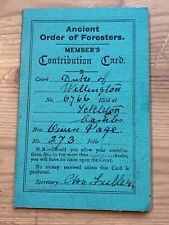 Ancient
Order of Foresters.
MEMBER'S
Contribution Card.
Court Duke of
Wellington
No. 6766 Held at
Ickleton
Cambs
Bro. Owen Page
No. 273 Folio
N.B.—Should you allow your contributions, &c., to run more than weeks, you will have no claim upon the Court.
No monies received unless this Card is produced.
Secretary,